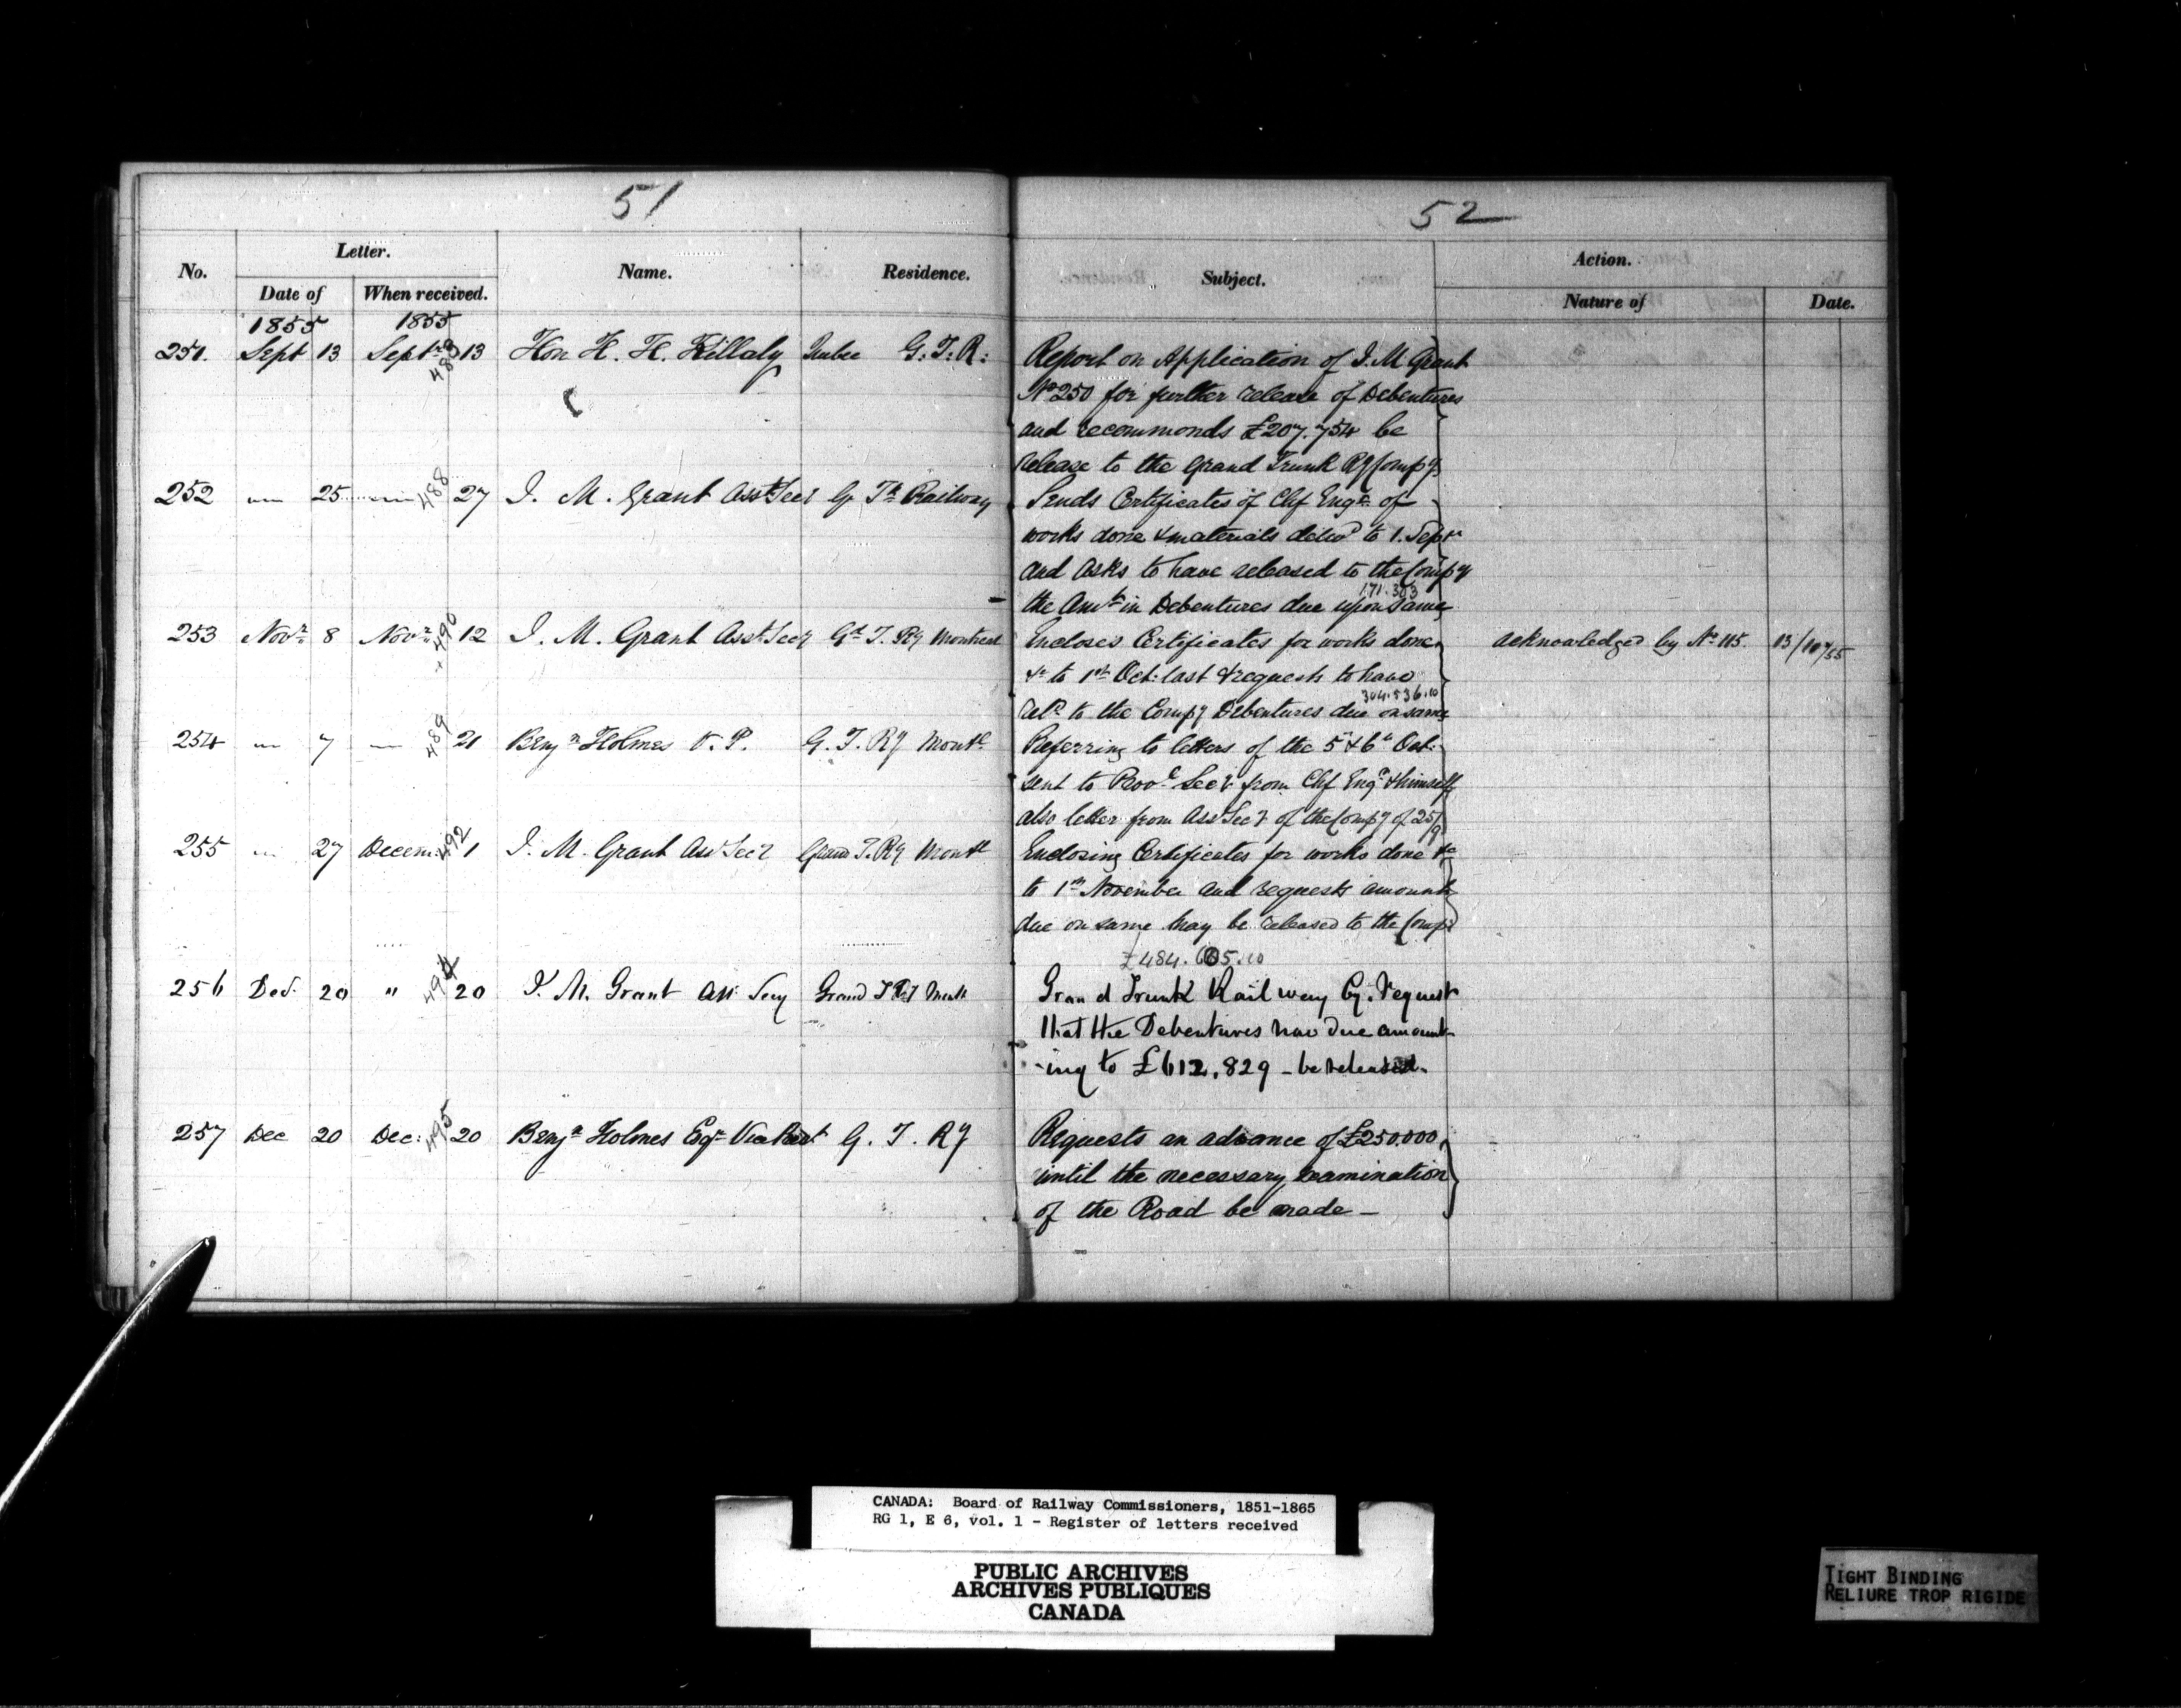 51
52
No.
Letter.
Date of
When received.
Name.
Residence.
Subject.
Action.
Nature of
Date.
1855
1855
251. Sept 13 Septr 483 13 Hon H. H. Killaly Quebec G. T. R:
Report on Application of J. M. Grant
No 250 for further release of Debentures
and recommends £207.754 be
release to the Grand Trunk Ry Compy
252 " 25 " 488 27 J. M. Grant Asst Secy G Tk Railway
Sends Certificates of Chf Engr of
works done & materials delivd to 1. Septr
and asks to have released to the Compy
171.303
the Amt in Debentures due upon same
253 Novr 8 Novr 490 12 J. M. Grant Asst Secy Gd T. Ry Montreal
Encloses Certificates for works done
&c to 1st Oct. last & requests to have
304.536.10
reld to the Compy Debentures due on same
acknowledged by No 115. 13/11/55
254 " 7 " 489 21 Benjn Holmes V. P. G. T. Ry Montl
Referring to letters of the 5 & 6th Oct.
sent to Provl Secy from Chf Engr & himself
also letter from Asst Secy of the Compy of 25/9
255 " 27 Decem. 492 1 J. M. Grant Asst Secy Grand T. Ry Montl
Enclosing Certificates for works done &c
to 1st November and requests amounts
due on same may be released to the Compy
£484.605.10
256 Dec. 20 " 494 20 J. M. Grant Ass: Secy Grand T Ry Montl
Grand Trunk Railway Cy. request
that the Debentures now due amount-
-ing to £612,829 - be released.
257 Dec 20 Dec: 495 20 Benjn Holmes Esqr Vice Prest G. T. Ry
Requests an advance of £250.000
until the necessary examination
of the Road be made -
CANADA: Board of Railway Commissioners, 1851-1865
RG 1, E 6, vol. 1 - Register of letters received
PUBLIC ARCHIVES
ARCHIVES PUBLIQUES
CANADA
TIGHT BINDING
RELIURE TROP RIGIDE